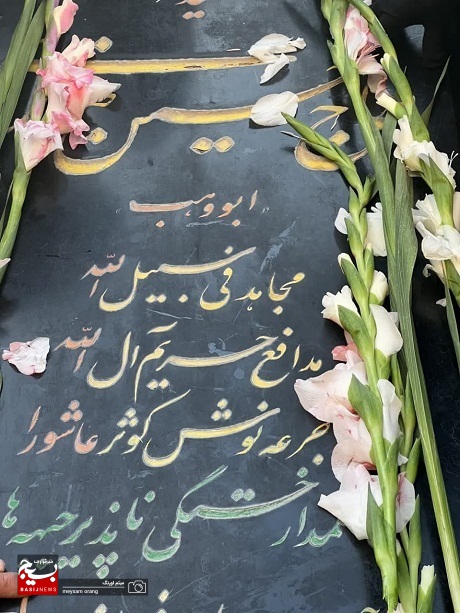 حسین
ابووهب
مجاهد فی سبیل الله
مدافع حریم آل الله
جرعه نوش کوثر عاشورا
مدار خستگی ناپذیر جبهه ها
خبرگزاری
بسیج
BASIJNEWS
میثم اورنگ
meysam orang